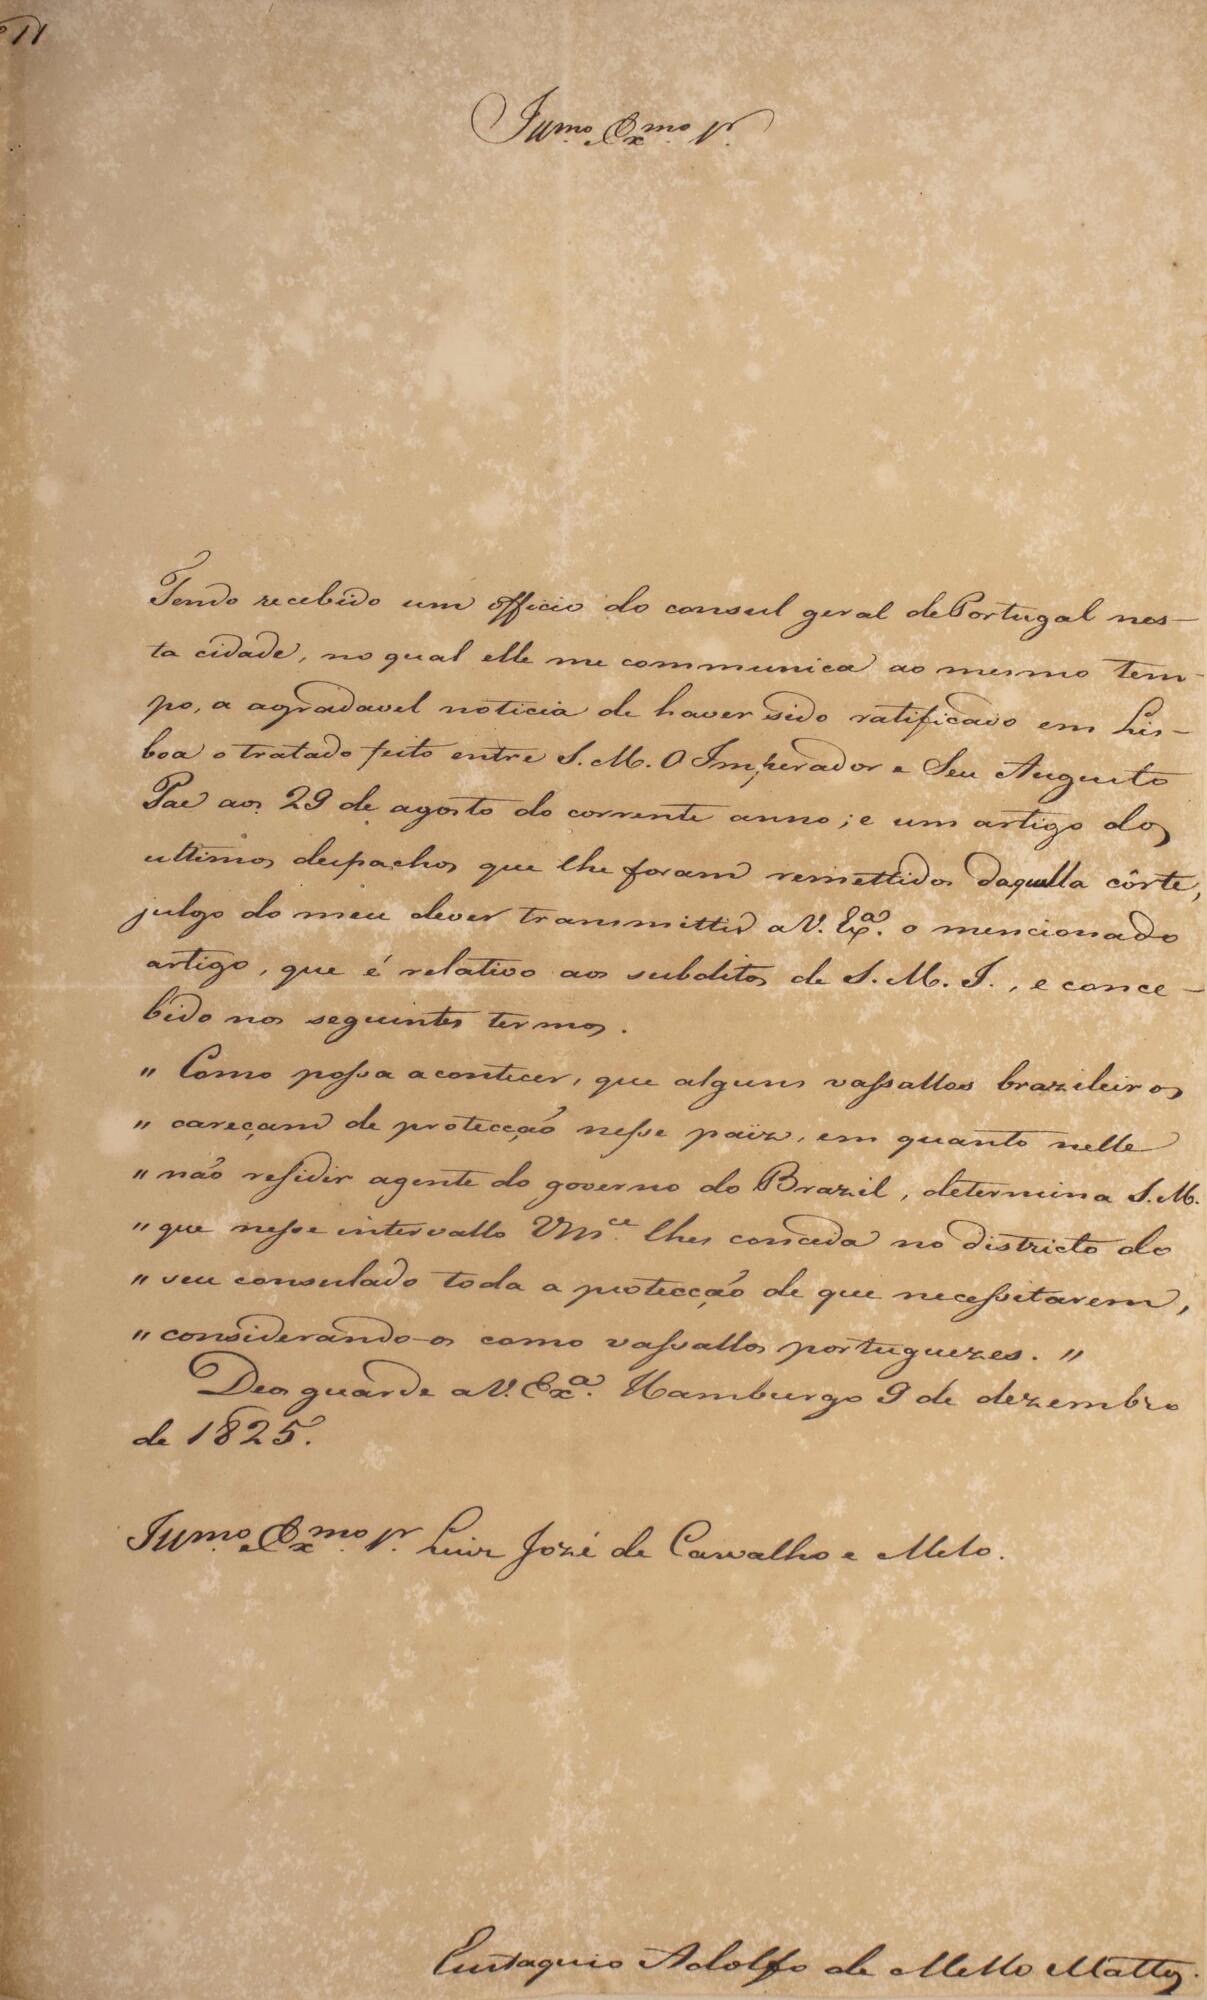 Illmo. Exmo. Sr.
Tendo recebido um officio do consul geral de Portugal nes-
ta cidade, no qual elle me communica ao mesmo tem-
po, a agradavel noticia de haver sido ratificado em Lis-
boa o tratado feito entre S. M. O Imperador e Seu Augusto
Pae aos 29 de agosto do corrente anno; e um artigo dos
ultimos despachos que lhe foram remettidos daquella côrte,
julgo do meu dever transmittir a V. Exa. o mencionado
artigo, que é relativo aos subditos de S. M. I., e conce-
bido nos seguintes termos.
" Como possa acontecer, que alguns vassallos brazileiros
" careçam de protecção nesse paiz, em quanto nelle
" não residir agente do governo do Brazil, determina S. M.
" que nesse intervallo Vmce. lhes conceda no districto do
" seu consulado toda a protecção de que necessitarem,
" considerando-os como vassallos portuguezes. "
Deos guarde a V. Exa. Hamburgo 9 de dezembro
de 1825.
Illmo. Exmo. Sr. Luiz Jozé de Carvalho e Melo.
Eustaquio Adolfo de Mello Mattos.